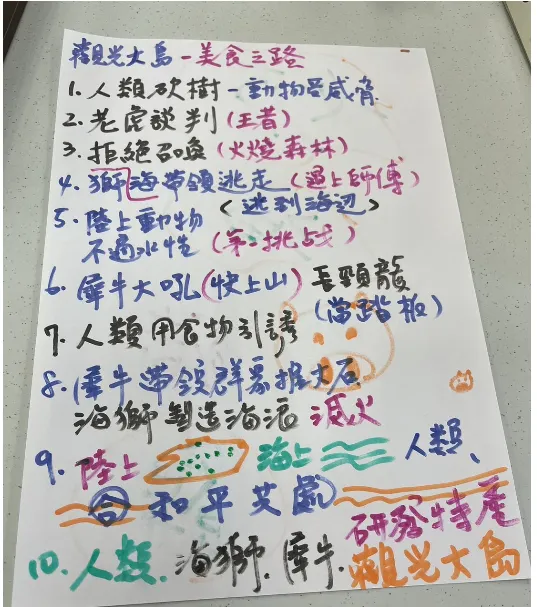 觀光大島-美食之路
1.人類砍樹-動物受威脅
2.老虎談判(王者)
3.拒絕召喚(火燒森林)
4.獅海帶領逃走(遇上師傅)
5.陸上動物<逃到海边>
不通水性(第二挑战)
6.犀牛大吼(快上山)長頸龍
(當踏板)
7.人類用食物引誘
8.犀牛帶領群眾推大石
海獅製造海浪 滅火
9.陸上 海上 人類、
合 和平共處
研發特產
10.人類.海獅.犀牛.觀光大島